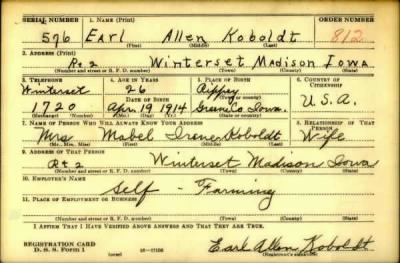 SERIAL NUMBER 1. NAME (Print) ORDER NUMBER
576 Earl Allen Koboldt 812
(First) (Middle) (Last)
2. ADDRESS (Print)
Rt 2 Winterset Madison Iowa
(Number and street or R. F. D. number) (Town) (County) (State)
3. TELEPHONE 4. AGE IN YEARS 5. PLACE OF BIRTH 6. COUNTRY OF CITIZENSHIP
Winterset 26 Rippey
DATE OF BIRTH (Town or county)
1720 Apr. 19 1914 Greene Co. Iowa. U.S.A.
(Exchange) (Number) (Mo.) (Day) (Yr.) (State or country)
7. NAME OF PERSON WHO WILL ALWAYS KNOW YOUR ADDRESS 8. RELATIONSHIP OF THAT PERSON
Mrs Mabel Irene Koboldt Wife
(Mr., Mrs., Miss) (First) (Middle) (Last)
9. ADDRESS OF THAT PERSON
Rt 2 Winterset Madison Iowa
(Number and street or R. F. D. number) (Town) (County) (State)
10. EMPLOYER'S NAME
Self - Farming
11. PLACE OF EMPLOYMENT OR BUSINESS
(Number and street or R. F. D. number) (Town) (County) (State)
I AFFIRM THAT I HAVE VERIFIED ABOVE ANSWERS AND THAT THEY ARE TRUE.
REGISTRATION CARD
D. S. S. Form 1 (over) Earl Allen Koboldt
(Registrant's signature)